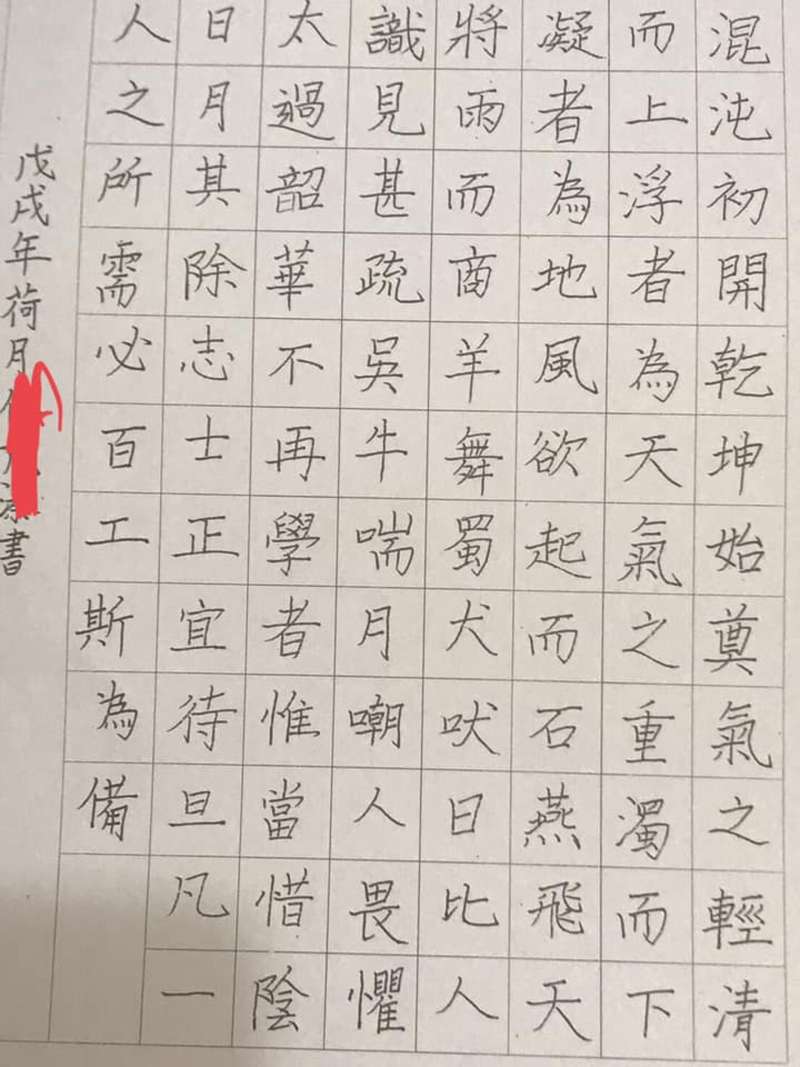 混沌初開乾坤始奠氣之輕清
而上浮者為天氣之重濁而下
凝者為地風欲起而石燕飛天
將雨而商羊舞蜀犬吠日比人
識見甚疏吳牛喘月嘲人畏懼
太過韶華不再學者惟當惜陰
日月其除志士正宜待旦凡一
人之所需必百工斯為備
戊戌年荷月書